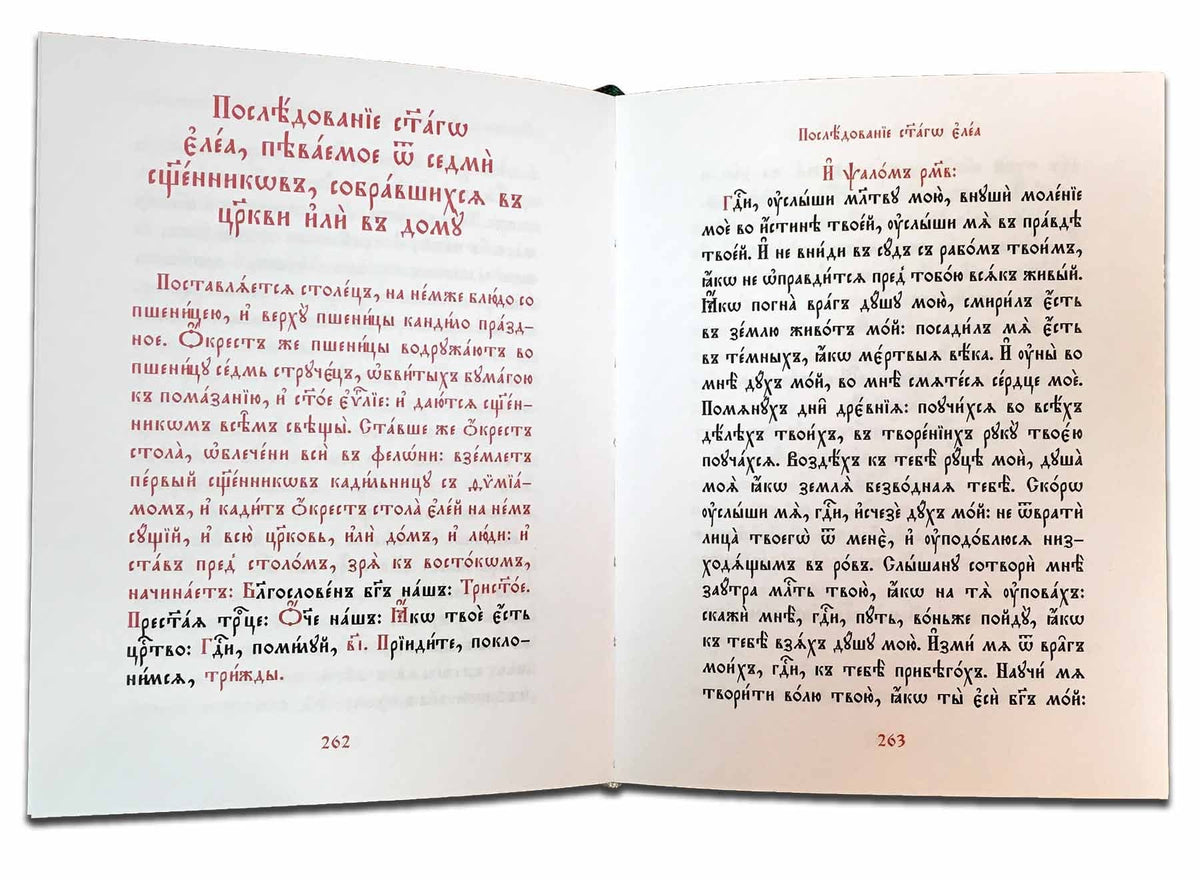 Послѣ́дованїе ст҃а́гѡ
є҆ле́а, пѣва́емое ѿ седмѝ
сщ҃е́нникѡвъ, собра́вшихсѧ въ
цр҃кви и҆лѝ въ домꙋ̀
Поставлѧ́етсѧ столе́цъ, на не́мже блю́до со
пшени́цею, и҆ верхꙋ̀ пшени́цы кандило пра́зд-
ное. Ѻ҆́крестъ же пшени́цы водрꙋжа́ютъ во
пшени́цꙋ се́дмь стрꙋче́цъ, ѡ҆бви́тыхъ бꙋма́гою
къ пома́занїю, и҆ ст҃о́е є҆ѵⷢ҇лїе: и҆ даю́тсѧ сщ҃е́н-
никѡмъ всѣ̑мъ свѣщы̀. Ста́вше же ѻ҆́крестъ
стола̀, ѡ҆блече́ни всѝ въ фелѡ́ни: взе́млетъ
пе́рвый сщ҃е́нникѡвъ кади́льницꙋ съ ѳѷмїа́-
момъ, и҆ кади́тъ ѻ҆́крестъ стола̀ є҆ле́й на не́мъ
сꙋ́щїй, и҆ всю̀ цр҃ковь, и҆лѝ до́мъ, и҆ лю́ди: и҆
ста́въ пред̾ столо́мъ, зрѧ̀ къ восто́кѡмъ,
начина́етъ: Бл҃гослове́нъ бг҃ъ на́шъ: Трист҃о́е.
Прест҃а́ѧ трⷪ҇це: Ѻ҆́ч҃е на́шъ: Ꙗ҆́кѡ твоѐ є҆́сть
црⷭ҇тво: Гдⷭ҇и, поми́лꙋй, в҃і. Прїиди́те, покло-
ни́мсѧ, три́жды.
262
Послѣ́дованїе ст҃а́гѡ є҆ле́а
И҆ ѱало́мъ рм҃в:
Гдⷭ҇и, ᲂу҆слы́ши мл҃твꙋ мою̀, внꙋшѝ моле́нїе
моѐ во и҆́стинѣ твое́й, ᲂу҆слы́ши мѧ̀ въ пра́вдѣ
твое́й. И҆ не вни́ди въ сꙋ́дъ съ рабо́мъ твои́мъ,
ꙗ҆́кѡ не ѡ҆правди́тсѧ пред̾ тобо́ю всѧ́къ живы́й.
Ꙗ҆́кѡ погна̀ вра́гъ дꙋ́шꙋ мою̀, смири́лъ є҆́сть
въ зе́млю живо́тъ мо́й: посади́лъ мѧ̀ є҆́сть
въ те́мныхъ, ꙗ҆́кѡ мє́ртвыѧ вѣ́ка. И҆ ᲂу҆ны̀ во
мнѣ̀ дꙋ́хъ мо́й, во мнѣ̀ смѧте́сѧ се́рдце моѐ.
Помѧнꙋ́хъ дни̑ дрє́внїѧ: поꙋчи́хсѧ во всѣ́хъ
дѣ́лѣхъ твои́хъ, въ творе́нїихъ рꙋкꙋ̀ твоє́ю
поꙋча́хсѧ. Воздѣ́хъ къ тебѣ̀ рꙋ́цѣ моѝ, дꙋша̀
моѧ̀ ꙗ҆́кѡ землѧ̀ безво́днаѧ тебѣ̀. Ско́рѡ
ᲂу҆слы́ши мѧ̀, гдⷭ҇и, и҆счезѐ дꙋ́хъ мо́й: не ѿвратѝ
лица̀ твоегѡ̀ ѿ менє̀, и҆ ᲂу҆подо́блюсѧ низ-
ходѧ́щымъ въ ро́въ. Слы́шанꙋ сотворѝ мнѣ̀
заꙋ́тра млⷭ҇ть твою̀, ꙗ҆́кѡ на тѧ̀ ᲂу҆пова́хъ:
скажѝ мнѣ̀, гдⷭ҇и, пꙋ́ть, во́ньже пойдꙋ̀, ꙗ҆́кѡ
къ тебѣ̀ взѧ́хъ дꙋ́шꙋ мою̀. И҆зми́ мѧ ѿ вра̑гъ
мои́хъ, гдⷭ҇и, къ тебѣ̀ прибѣго́хъ. Наꙋчи́ мѧ
твори́ти во́лю твою̀, ꙗ҆́кѡ ты̀ є҆сѝ бг҃ъ мо́й:
263